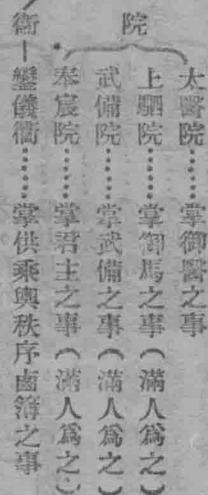 院
太醫院………掌御醫之事
上駟院………掌御馬之事(滿人爲之)
武備院………掌武備之事(滿人爲之)
奉宸院………掌君主之事(滿人爲之)
衞—鑾儀衞………掌供乘輿秩序鹵簿之事